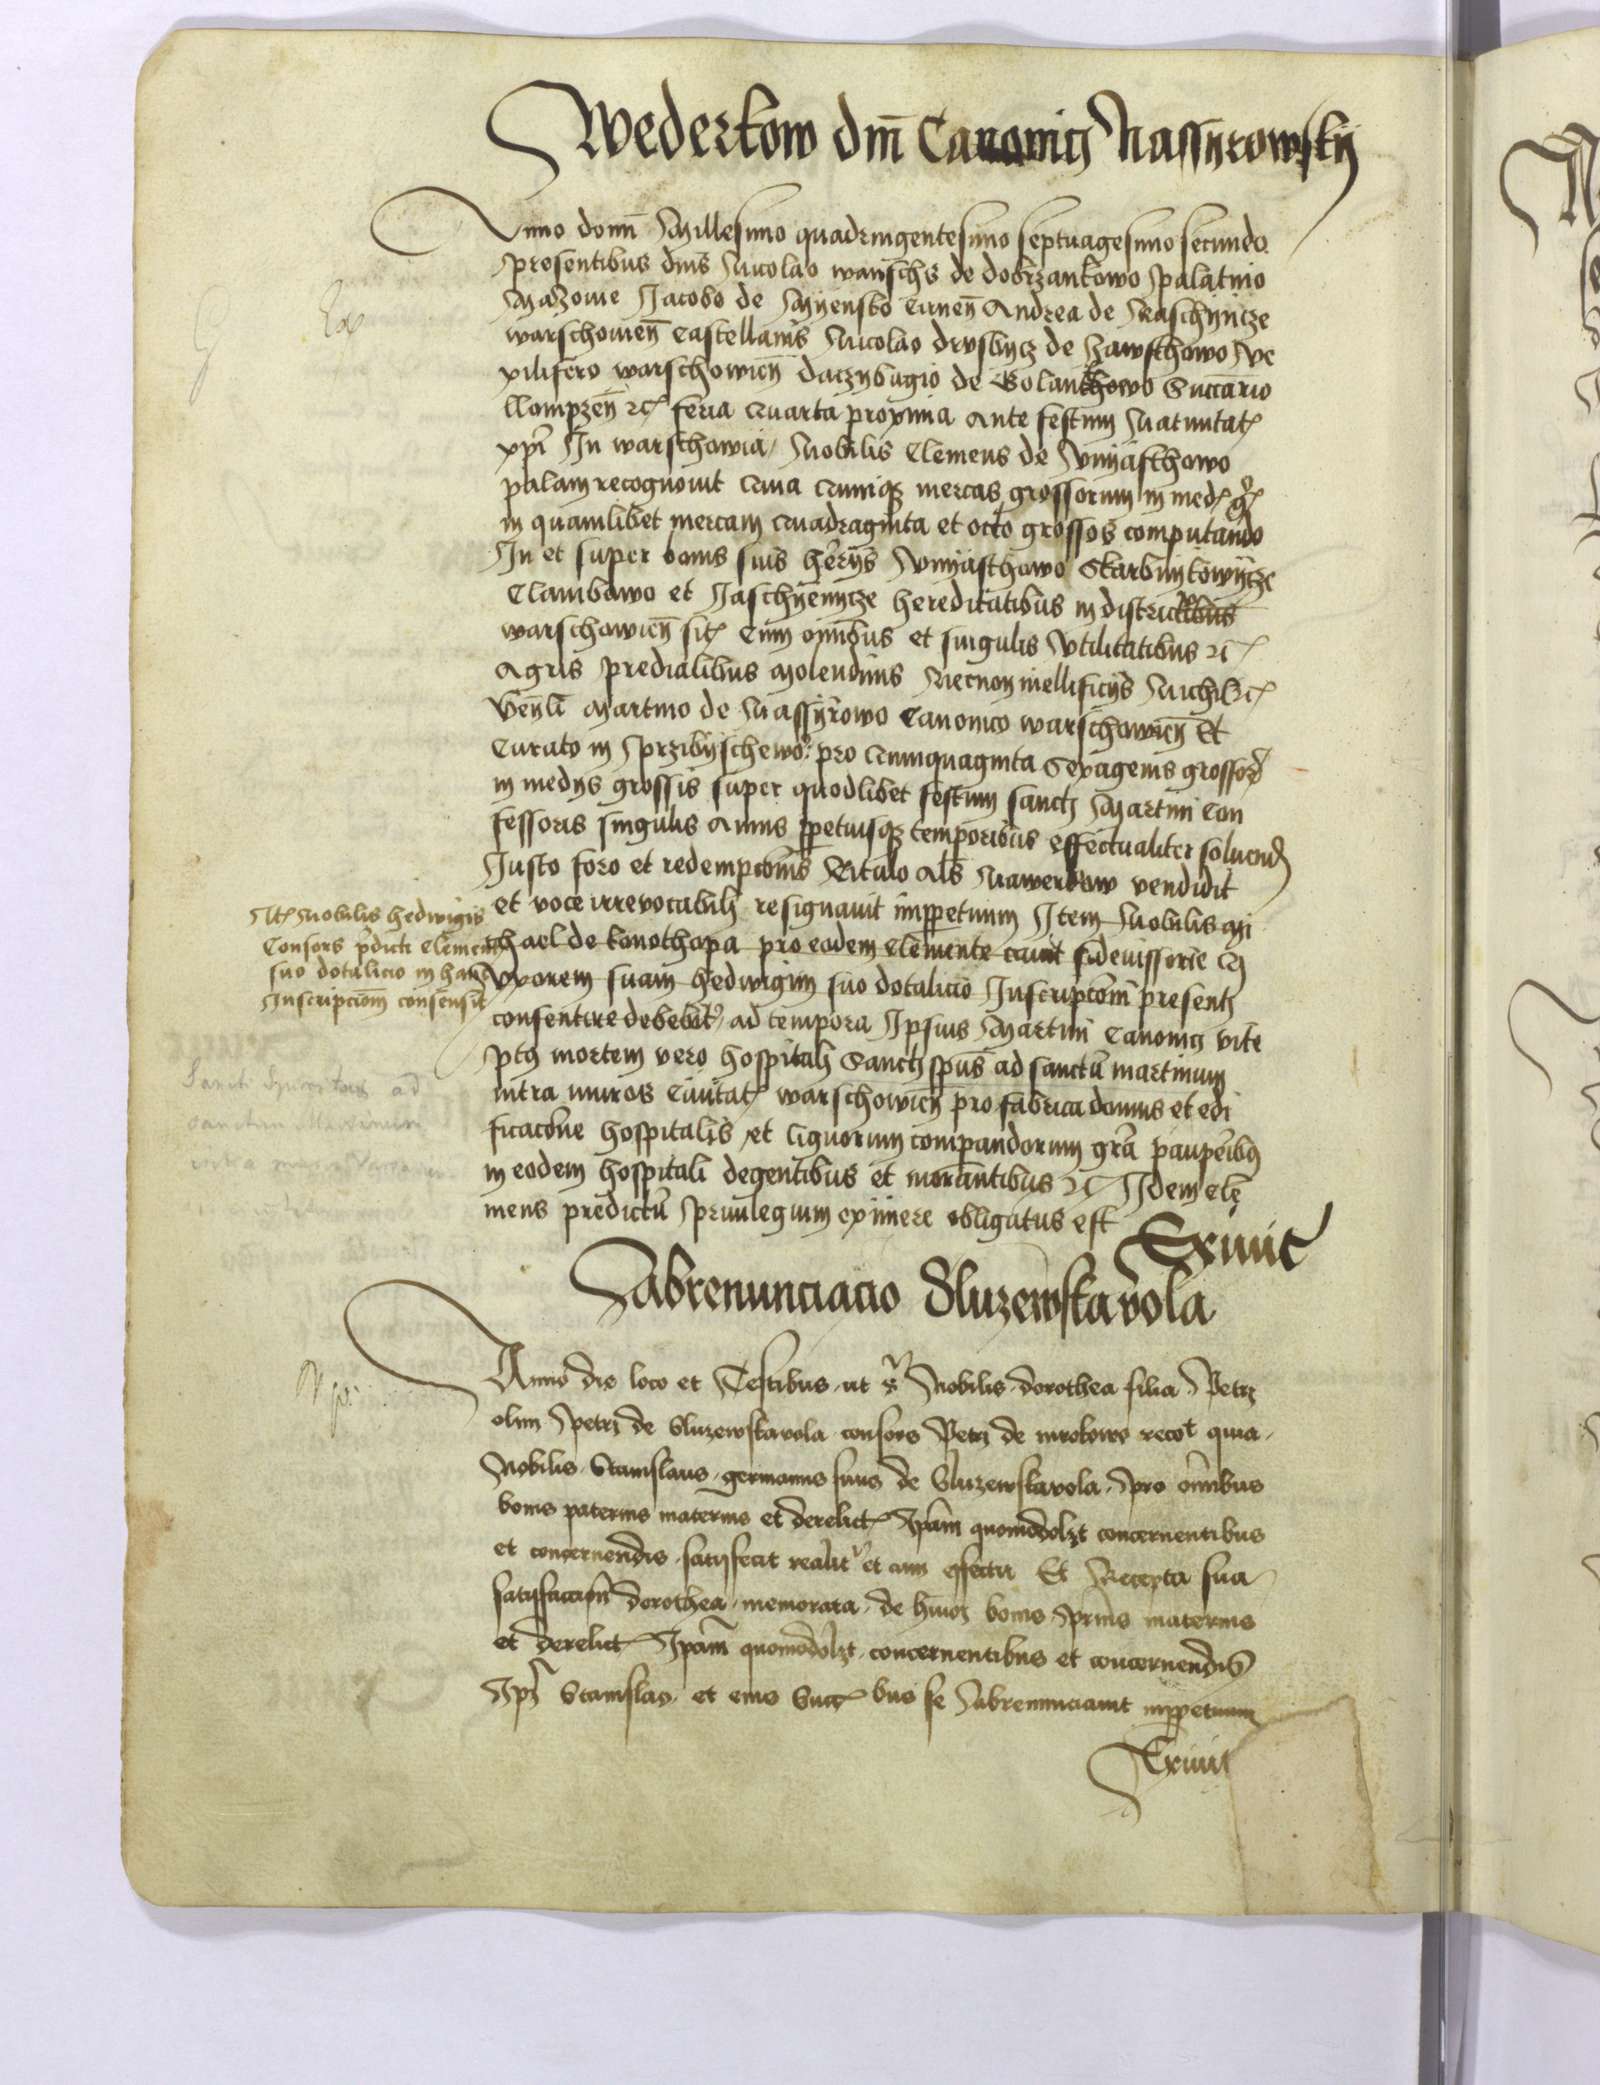 Wederkow dm̄ Canonicj Nassyrowsky
Anno domī Millesimo quadringentesimo septuagesimo secundo
presentibus dnīs Nicolao warschs de dobrzankowo palatino
Mazouie Jacobo de Mynsko Cirneñ Andrea de Raschyncze
warschouieñ Castellanis Nicolao de Zawsthowo Ve
xilifero warschowieñ daczybugio de Golanchowo Succario
llompzeñ ꝛc feria quarta proxima ante festum Natiuitat
xpī In warschowia Nobilis Clemens de Vnyasthowo
palam recognouit quia mercas grossorum in med
in quamlibet mercam quadraginta et octo grossos computando
In et super bonis suis herijs Vnyasthowo Skarbnykowycze
Clambowo et Jaschyenycze hereditatibus in districtibus
warschowieñ sit Cum omībus et singulis vtilitatibus ꝛc
Agris predialibus molendinis Necnon mellificijs Nichil
Martino de Nassyrowo Canonico warschowieñ Et
Curato in przibyschewo pro quinquaginta sexagenis grossor
in medijs grossis super quodlibet festum sanctj Martini Con
fessoris singulis Annis ꝑpetuisqꝫ temporibus effectualiter soluend
Justo foro et redempcōnis titulo als Nawerkow vendidit
et voce irreuocabilj resignauit imꝑpetuum Item Nobilis Mi
chael de konothopa pro eodem Clemente cauit fideiussorie
Vxorem suam hedwigim suo dotalicio Inscripcōni presentj
consentire debebit ad tempora Ipsius Martini Canonicj vite
mortem vero hospitalj Sanctj spūs ad sanctū martinum
intra muros Ciuitat warschowieñ pro fabrica domus et edi
ficacōne hospitalis et lignorum comparandorum grā pauperibus
in eodem hospitali degentibus et morantibus ꝛc Idem Cle
mens predictū priuilegium eximere obligatus est
Exiuit
Itē Nobilis hedwigis
Consors p̄dicti Clementis
suo dotalicio in hanc
Inscripciōem consensit
Sancti Spiritus ad
sanctum Martinum
intra
Sabrenunciacio Sluzewskavola
Anno die loco et Testibus ut sͣ Nobilis dorothea filia Petrj
olim Petrj de Sluzewskavola consors Petrj de mrokowo recot quia
Nobilis Stanislaus germanus suus de Sluzewskavola pro omībus
bonis paternis maternis et derelict Ipām quomodolꝫt concernentibus
et concernendis satisfecit realit et cum effectu Et Recepta sua
satisfaccoñ dorothea memorata de bonis pr̄nis maternis
et derelict Ipām quomodolꝫt concernentibus et concernendis
Ipī Stanislao et eius Succ bus se Sabrenunciauit imꝑpetuum
Exiuit